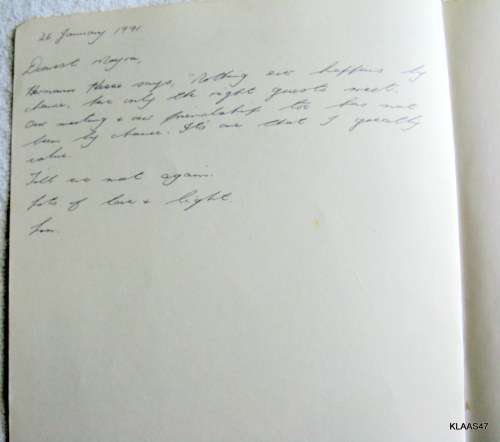 26 January 1991
Dearest Moyra,
Hermann Hesse says, "Nothing ever happens by
chance, here only the right guests meet.
Our meeting & our friendship too has not
been by chance. It's one that I greatly
value.
Till we meet again.
Lots of love & light.
KLAAS47